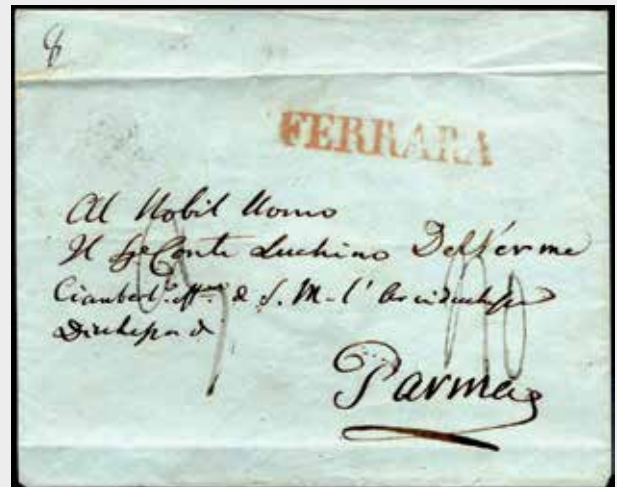 FERRARA
Al Nobil Uomo
Il Conte Luchino Del Verme
di S. M. l'Arciduchessa
Duchessa di
Parma